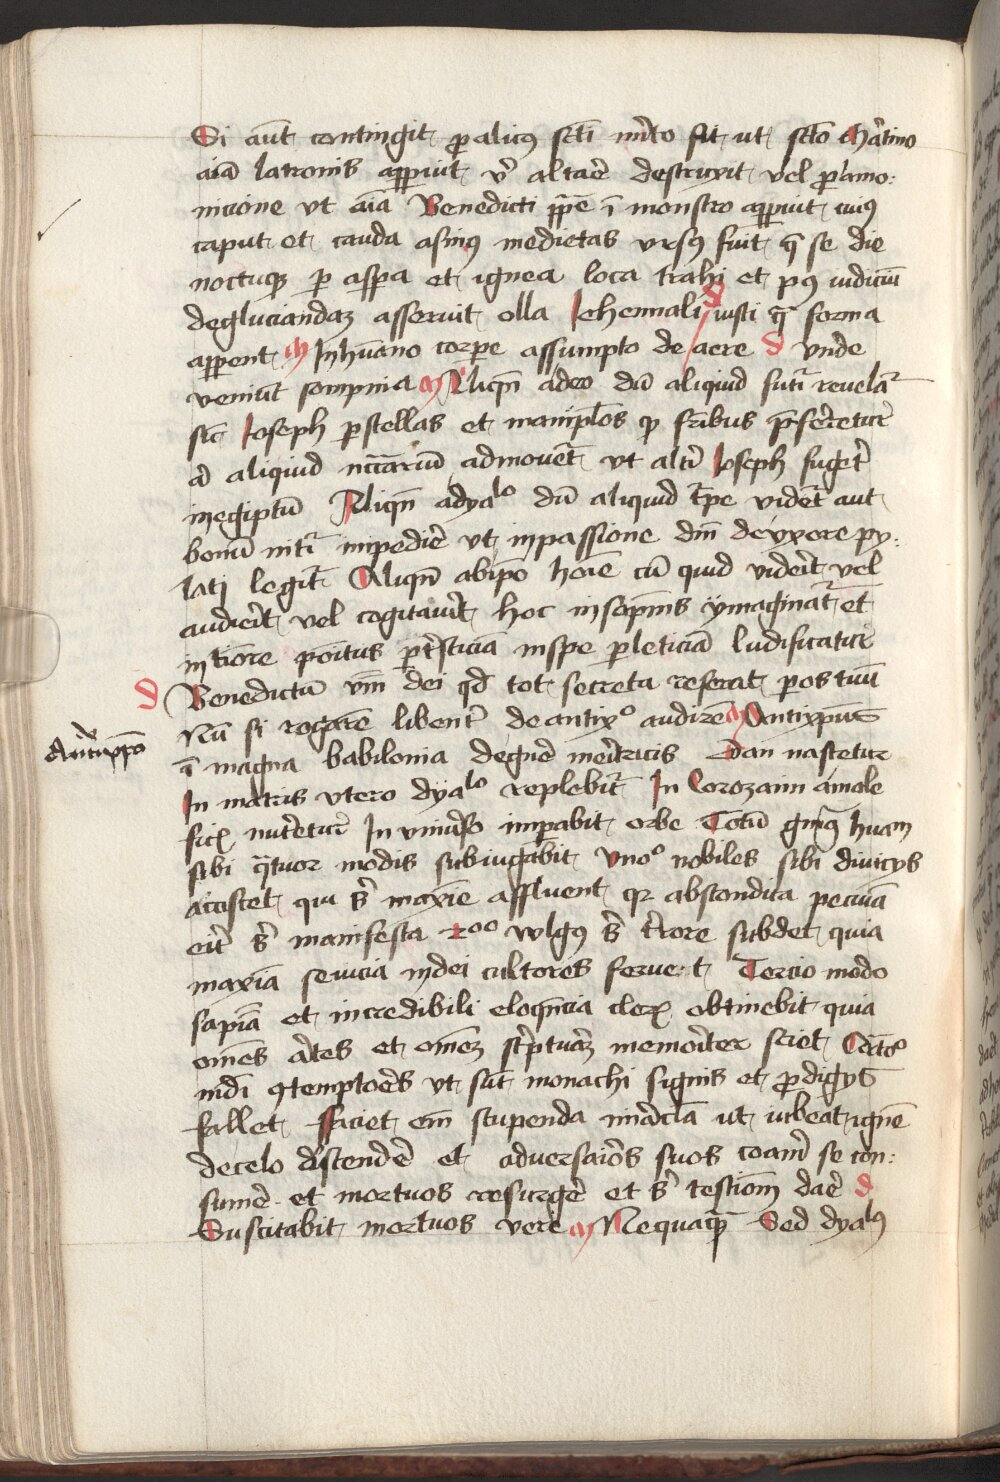 Si aut̄ contingit p̲ alicuꝰ scti m̄ito fit ut scto Martino
aīa latronis apparuit vͥ altare destruxit vel p̲ amo:
nicione vt aīa Benedicti pp̄e ī monstro apparuit cuiꝰ
caput et cauda asinꝰ medietas vrsꝰ fuit q̄ se die
noctuqꝫ p̲ asp̲a et ignea loca trahi et pꝰ iudiciū
degluciandaꝫ asseruit olla Iehennali d iusti q̄ forma
apparent M In hūano corpe assumpto de aere d vnde
veniūt sompnia M Aliqn̄ a deo dū aliquid futr̄ revelat̄
sic̄ Ioseph p̲ stellas et manipl̄os qꝫ fr̄ibus p̄ferretur
aͥ aliquid nc̄cariū admonet̄ vt altͥ Ioseph fuger̄t
in egiptū Aliqn̄ a dyalo dū aliquid t̄pe videt̄ aut
bonū nitͥ impedire vt in passione dn̄i de vxore py:
lati legit̄ Aliqn̄ ab ip̄o hoīe cū quid viderit vel
audierit vel cogitauerit hoc in sōpnis ymaginat̄ et
in timore positus p̲ tristiciā in spe p̲ leticiā ludificatur
d Benedictū vm̄ dei qd̄ tot secreta referat p̲ os tuū
Nū si rogarē libent̄ de antixͦ audirē M Antixpūs
Antixpō
ī magna babilonia de gn̄e meͥtricis Dan nascetur
In matris vtero dyalo replebit̄ In Corozaim a mole
ficꝫ nutrietur In vniuͥso imp̲abit orbe Totū gn̄qꝫ hūam
sibi q̄tuor modis subiugabit Vnoͦ nobiles sibi diuicijs
asciscet qui sͥ maxīe affluent qꝛ abscondita pecuīa
eit̄ sͥ manifesta 2oo wlgꝰ sͥ t̄rore subdet quia
maxīa seuicia in dei cultores feruet Tercio modo
sapīa et incredibili eloqn̄cia cleꝝ obtinebit quia
om̄es artes et om̄eꝫ sc̄pturaꝫ memoriter sciet Quartoͦ
mdi 9temptores vt sūt monachi signis et p̲digijs
fallet ffaciet em̄ stupenda miracl̄a ut iubeat ignē
de celo discendere et adversarios suos corā se con:
sumere et mortuos resurgere et sͥ testiom̄ dare d
Suscitabit mortuos vere M Nequaq̄ Sed dyalꝰ